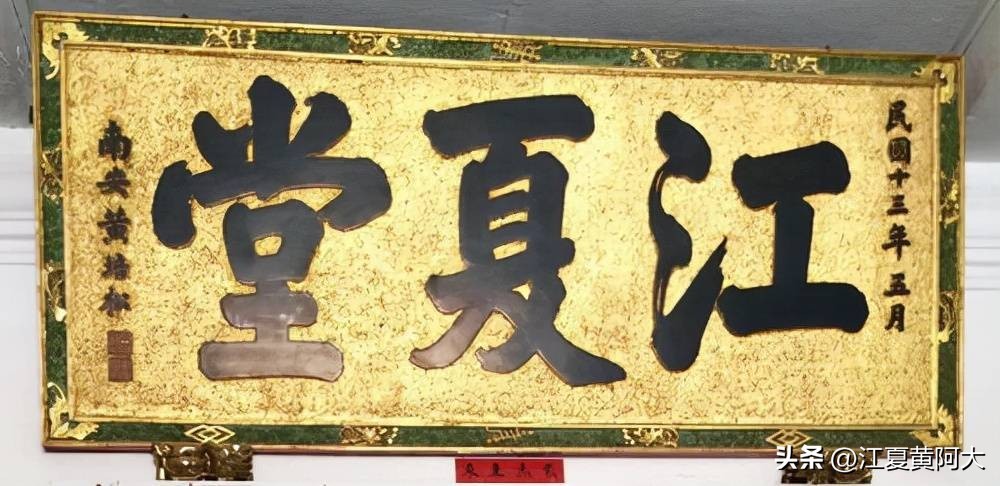 民國十三年五月
江夏堂
南安黃培松
头条 @江夏黄阿大